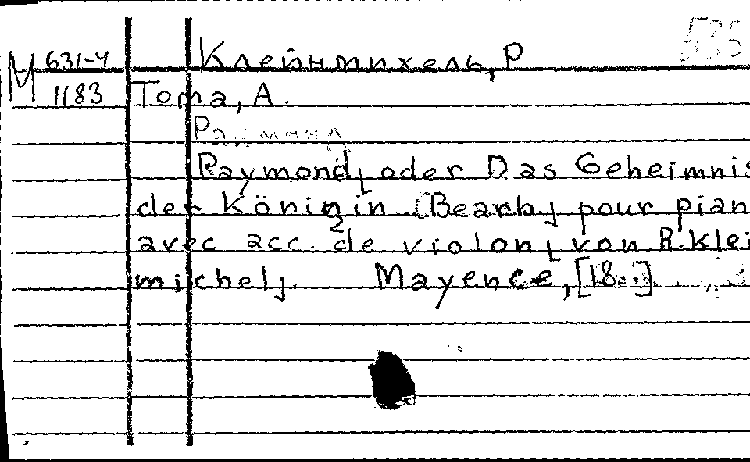 М 631-4 Клейнмихель, Р 535
1183 Тома, А.
Раймонд
Raymond, oder Das Geheimnis
der Königin [Bearb, pour pian
avec acc. de violon, von R. Klei
michel]. Mayence, [18..]